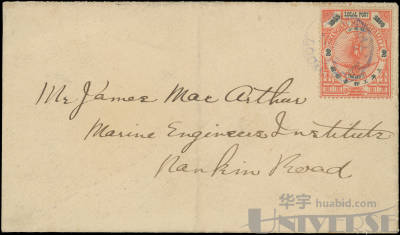 LOCAL POST
Mr James Mac Arthur
Marine Engineers Institute
Nankin Road
华宇 huabid.com
UNIVERSE